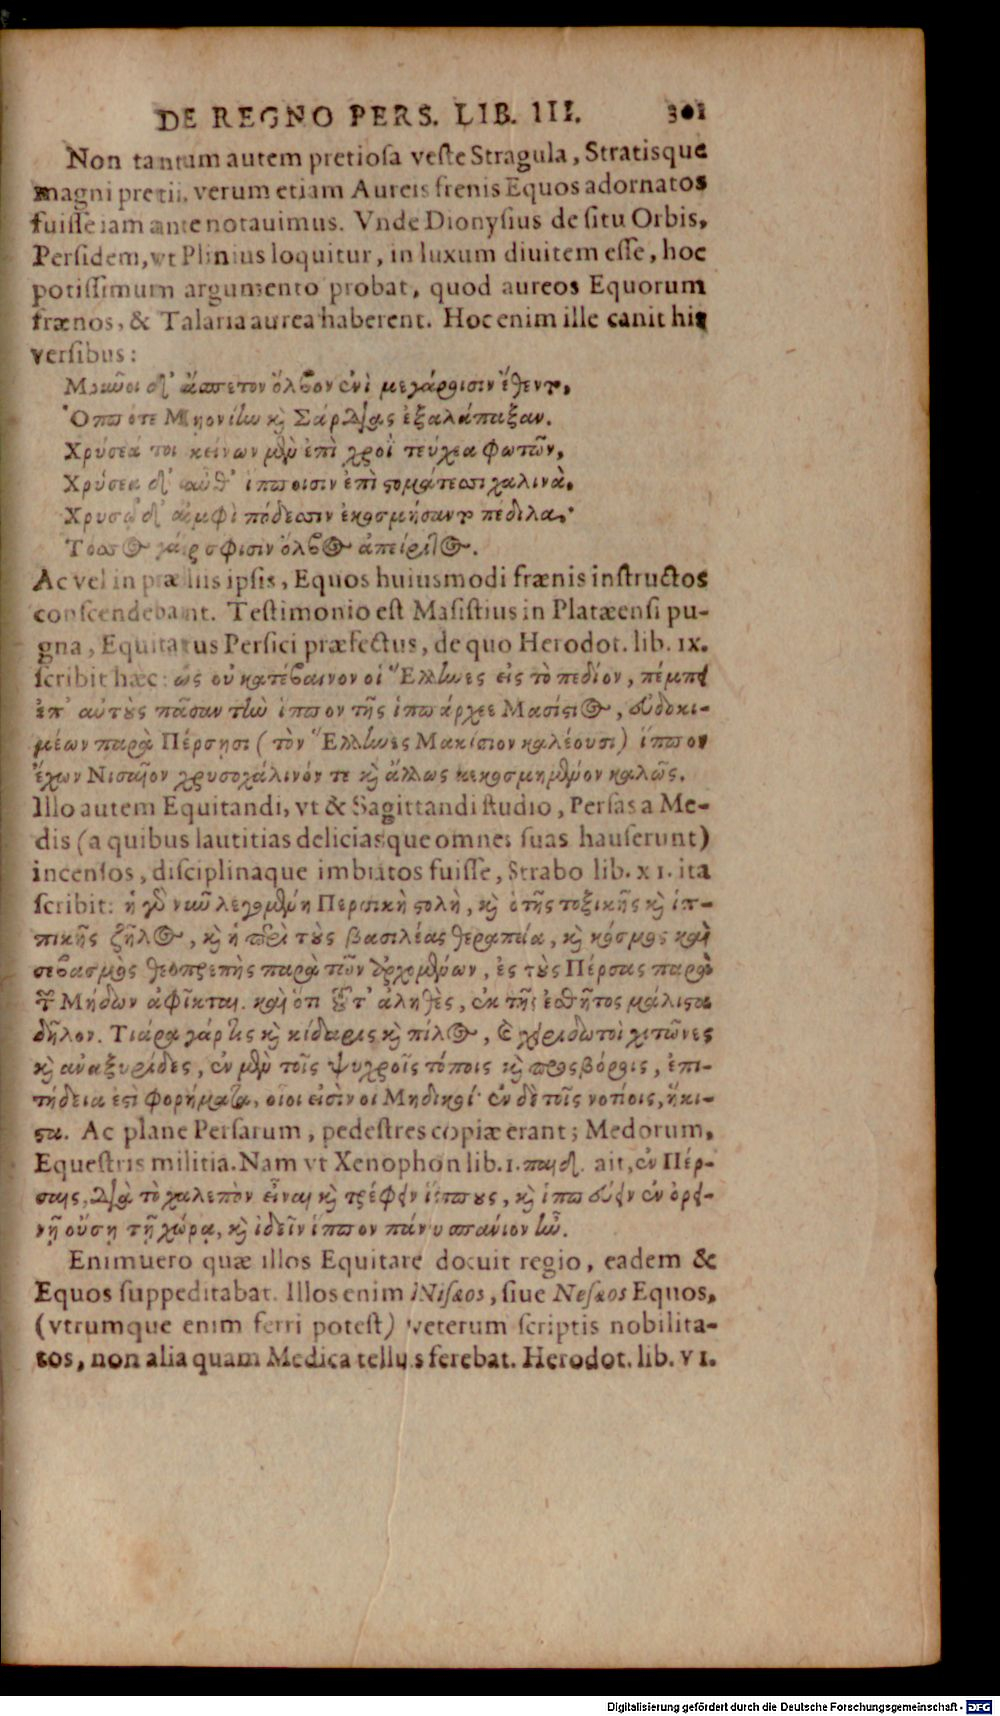 DE REGNO PERS. LIB. III. 301
Non tantum autem pretiosa veste Stragula, Stratisque
magni pretii, verum etiam Aureis frenis Equos adornatos
fuisse iam ante notauimus. Vnde Dionysius de situ Orbis,
Persidem, vt Plinius loquitur, in luxum diuitem esse, hoc
potissimum argumento probat, quod aureos Equorum
frænos, & Talaria aurea haberent. Hoc enim ille canit his
versibus:
Μοῦνοι δ' ἄσπετον ὄλβον ἐνὶ μεγάροισιν ἔθεντο,
Ὁππότε Μῃονίην καὶ Σάρδιας ἐξαλάπαξαν.
Χρύσεά τοι κείνων μὲν ἐπὶ χροῒ τεύχεα φωτῶν,
Χρύσεα δ' αὖθ' ἵπποισιν ἐπὶ στομάτεσσι χαλινὰ,
Χρυσῷ δ' ἀμφὶ πόδεσσιν ἐκοσμήσαντο πέδιλα,
Τόσσος γάρ σφισιν ὄλβος ἀπείριτος.
Ac vel in præliis ipsis, Equos huiusmodi frænis instructos
conscendebant. Testimonio est Masistius in Platæensi pu-
gna, Equitatus Persici præfectus, de quo Herodot. lib. IX.
scribit hæc: ὡς οὐ κατέβαινον οἱ Ἕλληνες εἰς τὸ πεδίον, πέμπει
ἐπ' αὐτοὺς πᾶσαν τὴν ἵππον τῆς ἱππάρχεε Μασίστιος, εὐδοκι-
μέων παρὰ Πέρσῃσι (τὸν Ἕλληνες Μακίστιον καλέουσι) ἵππον
ἔχων Νισαῖον χρυσοχάλινόν τε καὶ ἄλλως κεκοσμημένον καλῶς.
Illo autem Equitandi, vt & Sagittandi studio, Persas a Me-
dis (a quibus lautitias deliciasque omnes suas hauserunt)
incensos, disciplinaque imbutos fuisse, Strabo lib. XI. ita
scribit: ἡ γὸ νῦν λεγομένη Περσικὴ στολὴ, καὶ ὁ τῆς τοξικῆς καὶ ἱπ-
πικῆς ζῆλος, καὶ ἡ περὶ τοὺς βασιλέας θεραπεία, καὶ κόσμος καὶ
σεβασμὸς θεοπρεπὴς παρὰ τῶν ἀρχομένων, ἐς τοὺς Πέρσας παρὰ
τῶν Μήδων ἀφῖκται. καὶ ὅτι τοῦτ' ἀληθὲς, ἐκ τῆς ἐσθῆτος μάλιστα
δῆλον. Τιάρα γάρ τις καὶ κίδαρις καὶ πῖλος, καὶ χειριδωτοὶ χιτῶνες
καὶ ἀναξυρίδες, ἐν μὲν τοῖς ψυχροῖς τόποις καὶ προσβόροις, ἐπι-
τήδεια ἐστὶ φορήματα, οἷοι εἰσὶν οἱ Μηδικοί· ἐν δὲ τοῖς νοτίοις, ἥκι-
στα. Ac plane Persarum, pedestres copiæ erant; Medorum,
Equestris militia. Nam vt Xenophon lib. I. παιδ. ait, ἐν Πέρ-
σαις, διὰ τὸ χαλεπὸν εἶναι καὶ τρέφειν ἵππους, καὶ ἱππεύειν ἐν ὀρει-
νῇ οὔσῃ τῇ χώρᾳ, καὶ ἰδεῖν ἵππον πάνυ σπάνιον ἦν.
Enimuero quæ illos Equitare docuit regio, eadem &
Equos suppeditabat. Illos enim Nisæos, siue Nesæos Equos,
(vtrumque enim ferri potest) veterum scriptis nobilita-
tos, non alia quam Medica tellus ferebat. Herodot. lib. VI.
Digitalisierung gefördert durch die Deutsche Forschungsgemeinschaft - DFG